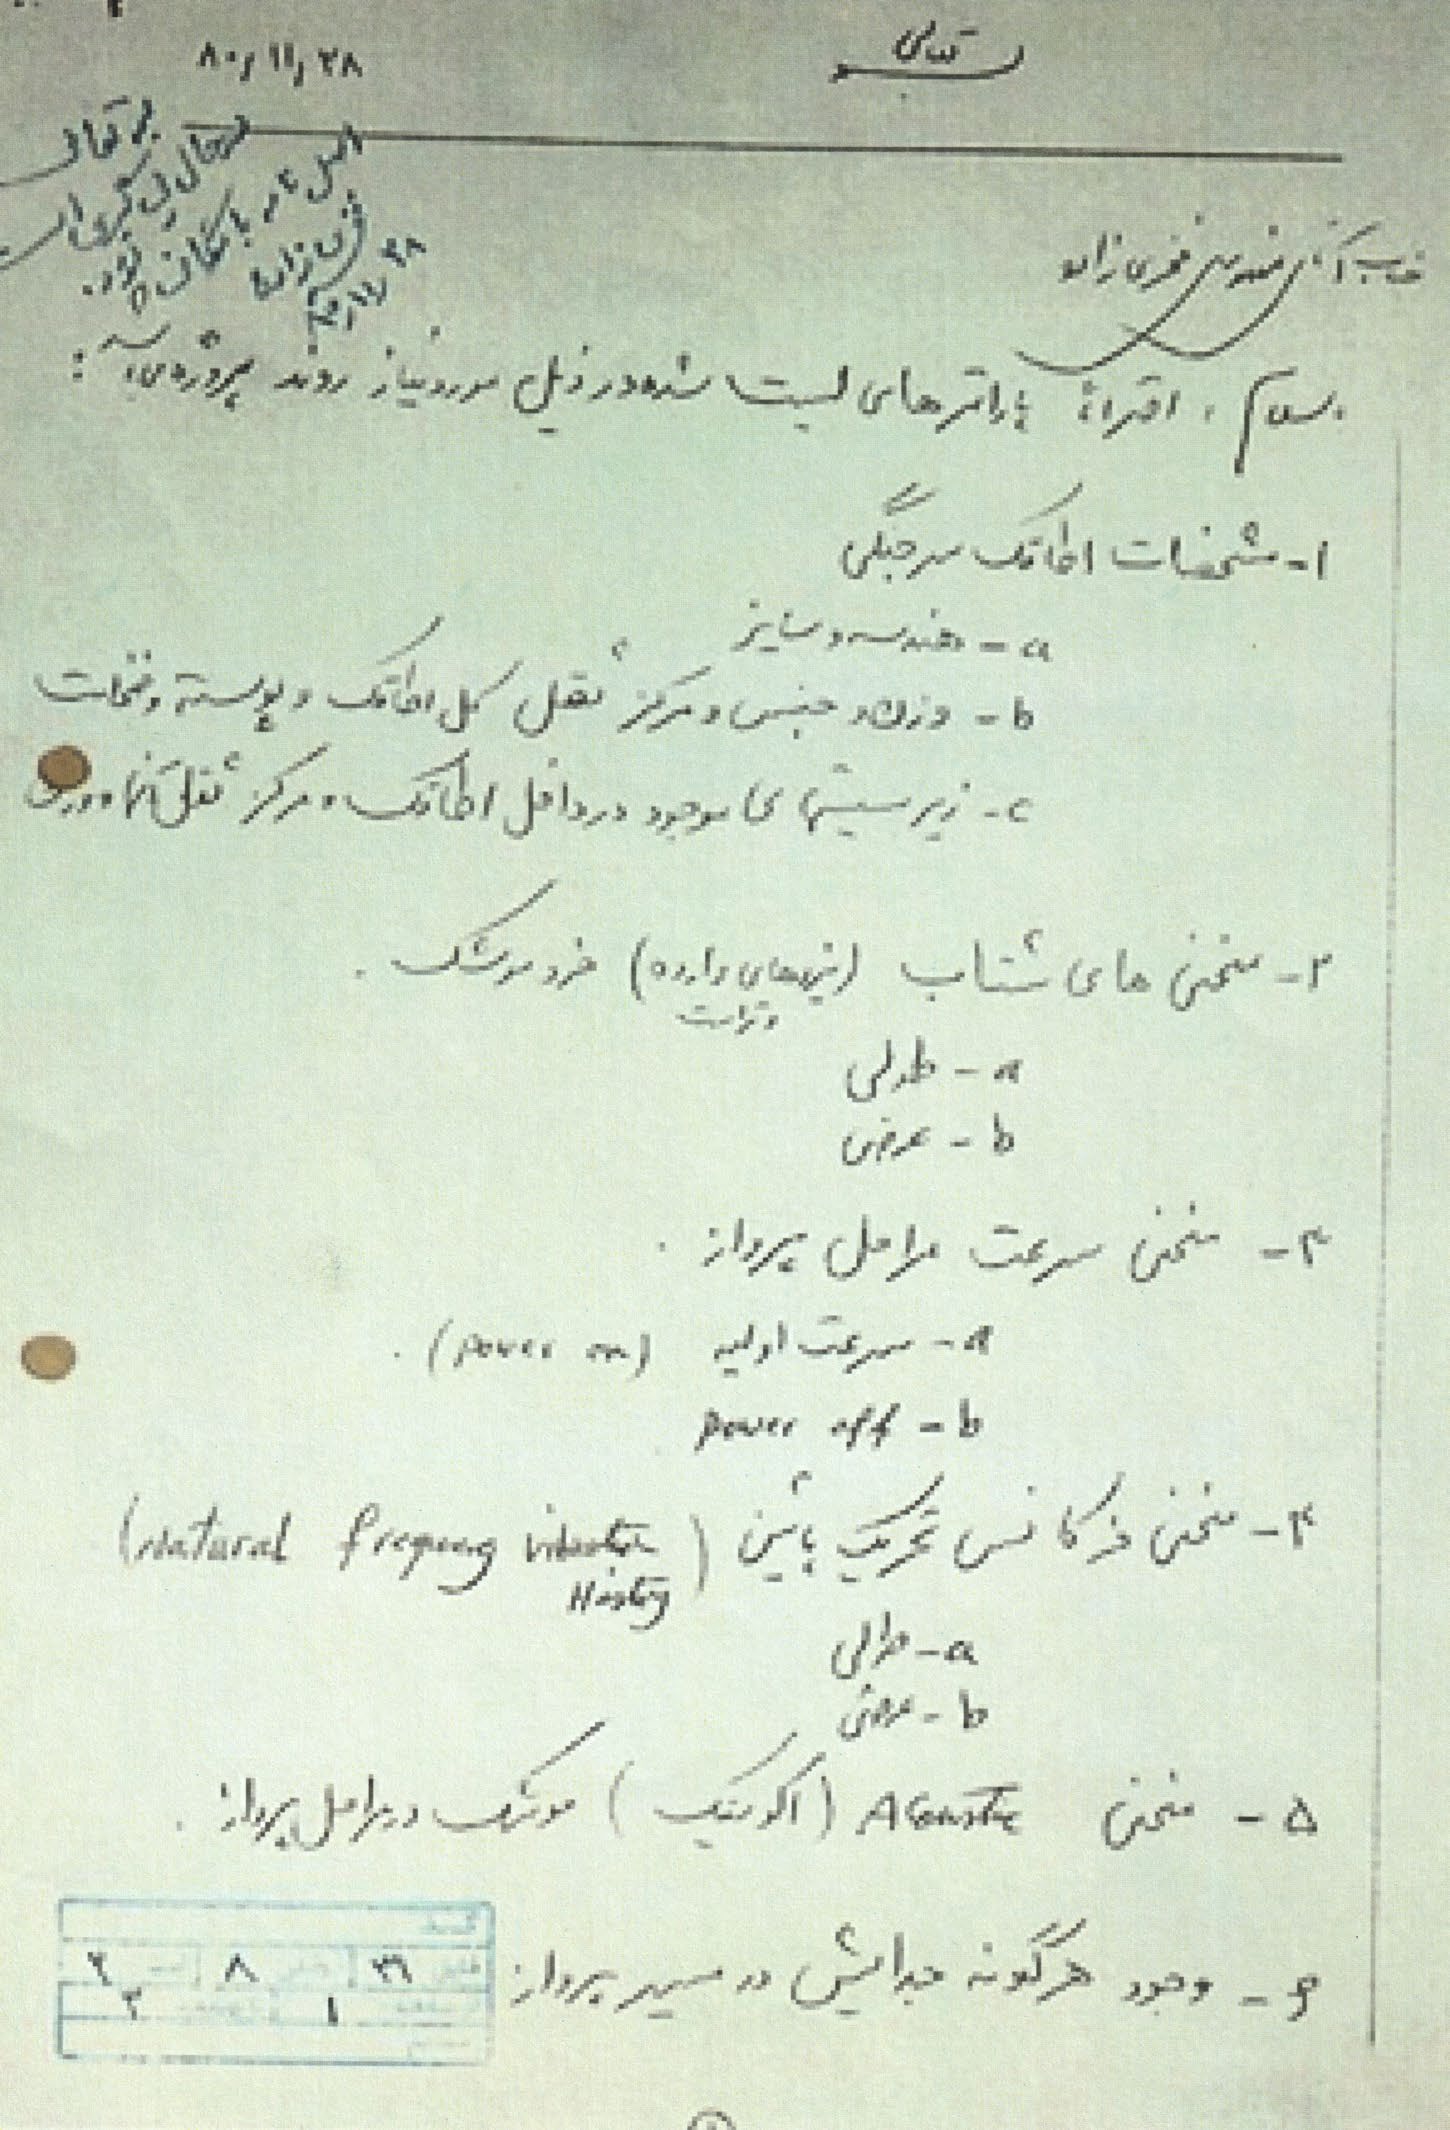 بسمه تعالی
۸۰٫۱۱٫۲۸
بسمه تعالی
در حال پی گیری است
اصل نامه بایگانی شود.
فخری زاده
۸۰٫۱۱٫۲۸
جناب آقای مهندس فخری زاده
سلام، احتراماً پارامترهای لیست شده در ذیل مورد نیاز روند پروژه می باشد:
۱- مشخصات اطاقک سرجنگی
a - هندسه و سایز
b - وزن و جنس و مرکز ثقل کل اطاقک و پوسته و ضخامت
c - زیر سیستمهای موجود در داخل اطاقک و مرکز ثقل آنها و وزن
۲- منحنی های شتاب (نیروهای وارده) خود موشک.
a - طولی
b - عرضی
۳- منحنی سرعت مراحل پرواز.
a - سرعت اولیه (power on).
b - power off
۴- منحنی فرکانس تحریک پائین (Natural frequency vibration
History)
a - طولی
b - عرضی
۵- منحنی Acoustic (اکوستیک) موشک در مراحل پرواز.
۶- وجود هرگونه جدایش در مسیر پرواز
۳۶ ۸ ۲
۱ ۲